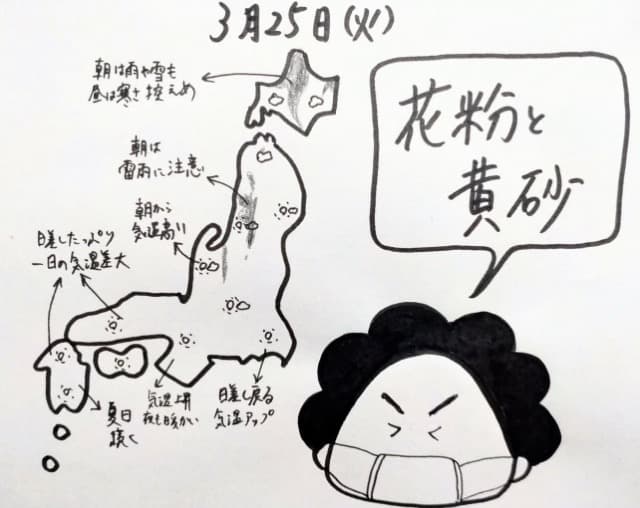 3月25日(火)
朝は雨や雪も
昼は寒さ控えめ
朝は
雷雨に注意
朝から
気温高め
日差したっぷり
一日の気温差大
気温上昇
夜も暖かい
日差し戻る
気温アップ
夏日
続く
花粉と
黄砂